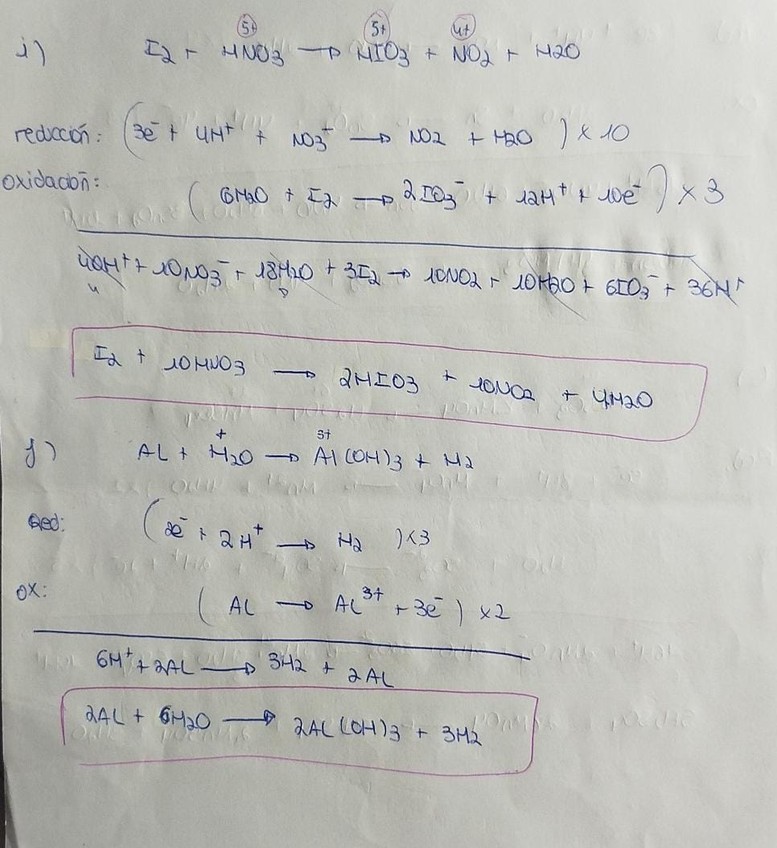 5+ 5+ 4+
i) I2 + HNO3 → HIO3 + NO2 + H2O
reducción: (3e⁻ + 4H⁺ + NO3⁺ → NO2 + H2O) x 10
oxidación: (6H2O + I2 → 2IO3⁻ + 12H⁺ + 10e⁻) x 3
40H⁺ + 10NO3⁻ + 18H2O + 3I2 → 10NO2 + 10H2O + 6IO3⁻ + 36H⁺
4
I2 + 10HNO3 → 2HIO3 + 10NO2 + 4H2O
+ 3+
j) AL + H2O → Al(OH)3 + H2
Red: (2e⁻ + 2H⁺ → H2) x3
OX: (AL → AL³⁺ + 3e⁻) x2
6H⁺ + 2AL → 3H2 + 2AL
2AL + 6H2O → 2AL(OH)3 + 3H2